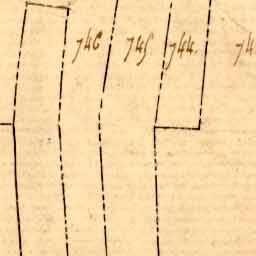 746 745 744. 74